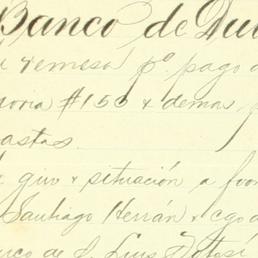 Banco de Du
remesa pº pago d
oria $150 & demas
astas
giro & situación a favor
Santiago Herrán & cgo d
rco de S. Luis Potosí